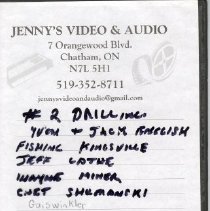 JENNY'S VIDEO & AUDIO
7 Orangewood Blvd.
Chatham, ON
N7L 5H1
519-352-8711
jennysvideoandaudio@gmail.com
# 2 DRILLING
YVON + JACK ENGLISH
FISHING KINGSVILLE
JEFF LATHE
WAYNE MINER
CHET SHUMANSKI
Goiswinkler